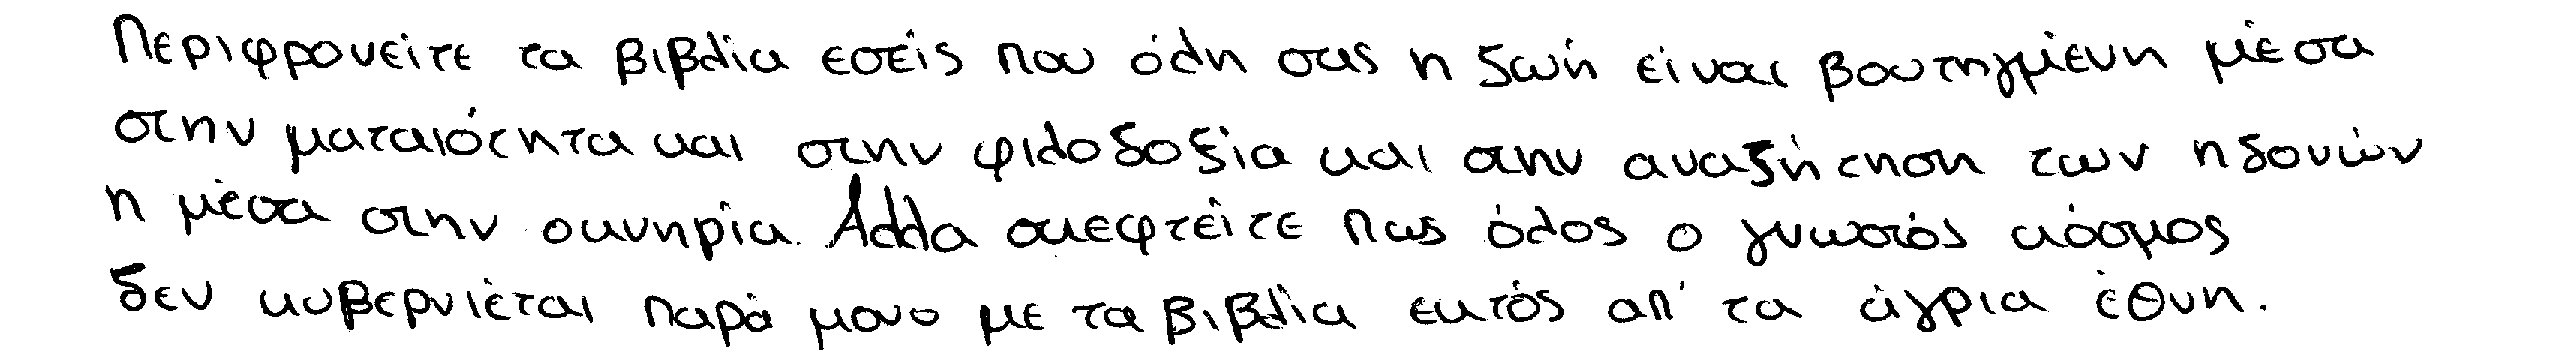 Περιφρονείτε τα βιβλία εσείς που όλη σας η ζωή είναι βουτηγμένη μέσα
στην ματαιότητα και στην φιλοδοξία και στην αναζήτηση των ηδονών
η μέσα στην οκνηρία. Αλλα σκεφτείτε πως όλος ο γνωστός κόσμος
δεν κυβερνιέται παρά μονο με τα βιβλία εκτός απ' τα άγρια έθνη.